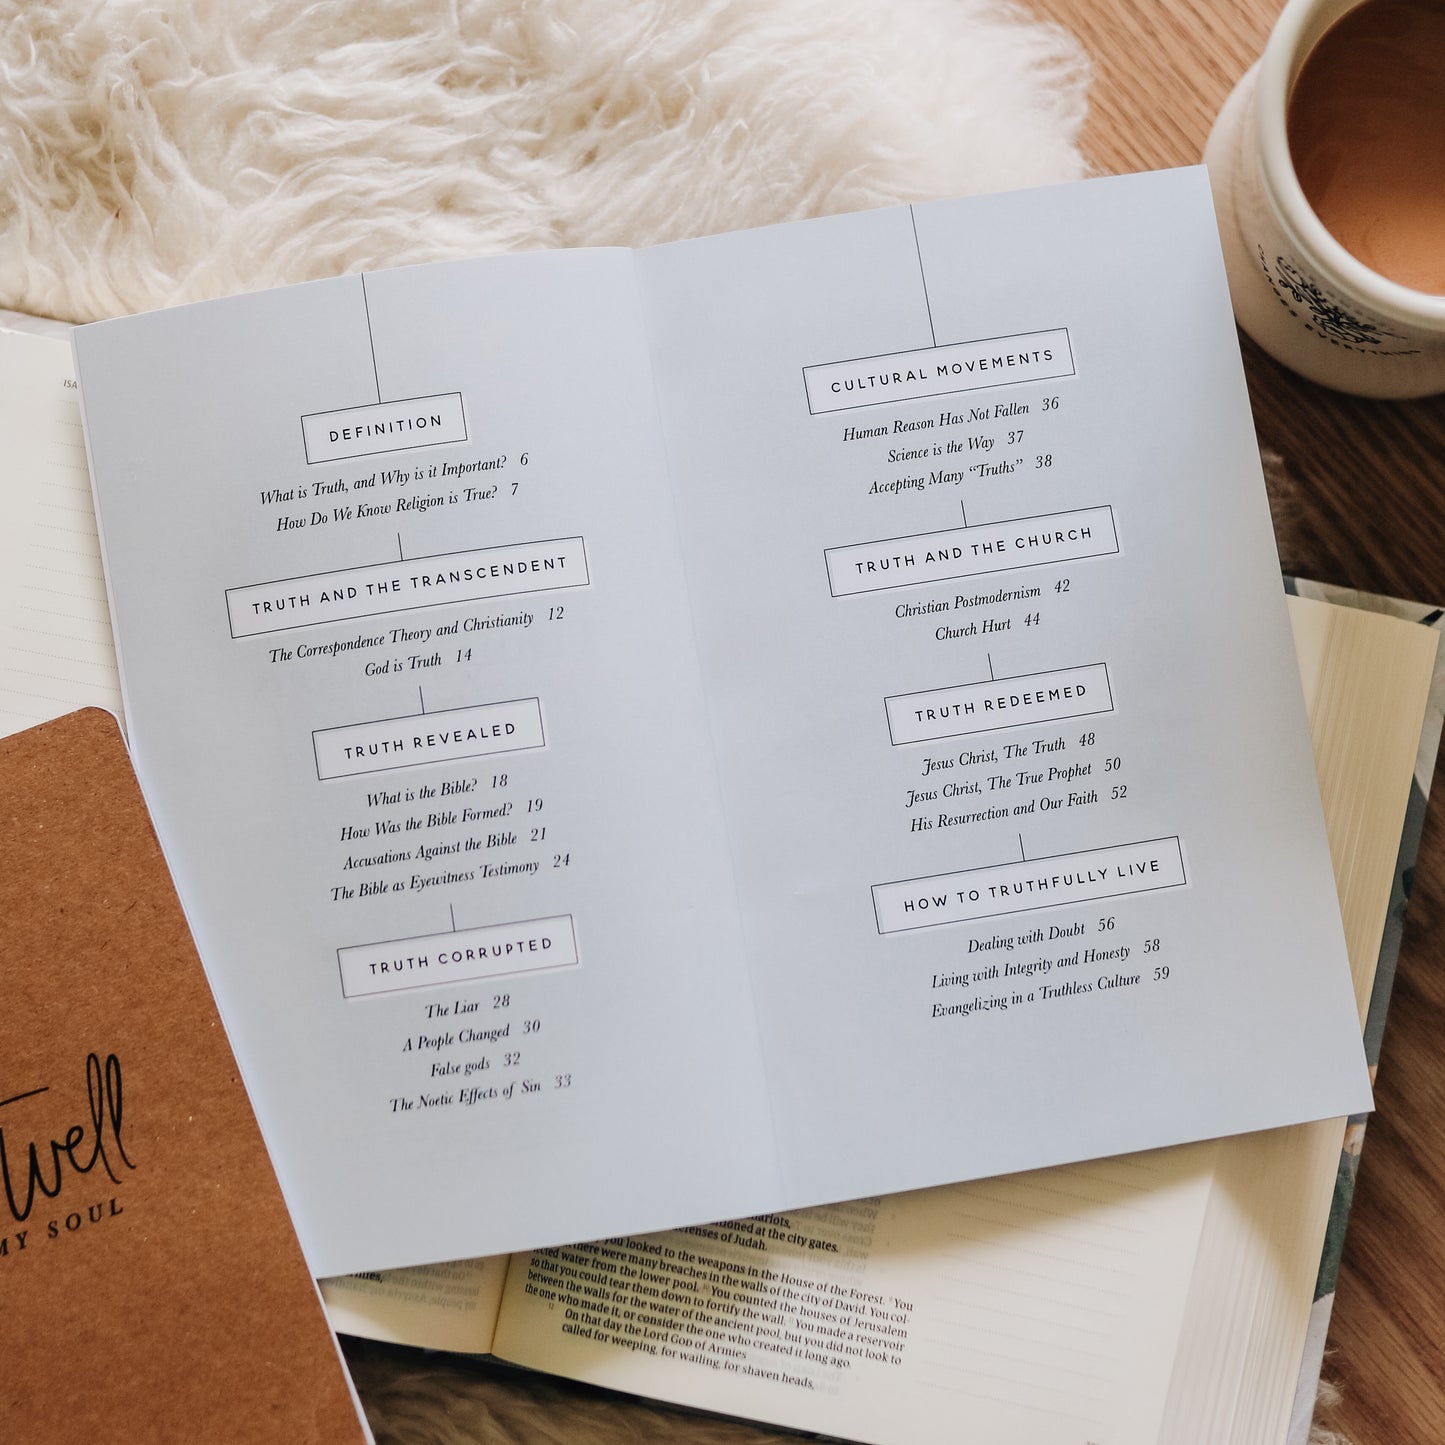 DEFINITION
What is Truth, and Why is it Important? 6
How Do We Know Religion is True? 7
TRUTH AND THE TRANSCENDENT
The Correspondence Theory and Christianity 12
God is Truth 14
TRUTH REVEALED
What is the Bible? 18
How Was the Bible Formed? 19
Accusations Against the Bible 21
The Bible as Eyewitness Testimony 24
TRUTH CORRUPTED
The Liar 28
A People Changed 30
False gods 32
The Noetic Effects of Sin 33
CULTURAL MOVEMENTS
Human Reason Has Not Fallen 36
Science is the Way 37
Accepting Many “Truths” 38
TRUTH AND THE CHURCH
Christian Postmodernism 42
Church Hurt 44
TRUTH REDEEMED
Jesus Christ, The Truth 48
Jesus Christ, The True Prophet 50
His Resurrection and Our Faith 52
HOW TO TRUTHFULLY LIVE
Dealing with Doubt 56
Living with Integrity and Honesty 58
Evangelizing in a Truthless Culture 59
ISA
well
MY SOUL
CHANGES EVERYTHING
tioned at the city gates.
of Judah.
you looked to the weapons in the House of the Forest. 9 You
there were many breaches in the walls of the city of David. You col-
water from the lower pool. 10 You counted the houses of Jerusalem
so that you could tear them down to fortify the wall. 11 You made a reservoir
between the walls for the water of the ancient pool, but you did not look to
the one who made it, or consider the one who created it long ago.
12 On that day the Lord GOD of Armies
called for weeping, for wailing, for shaven heads,